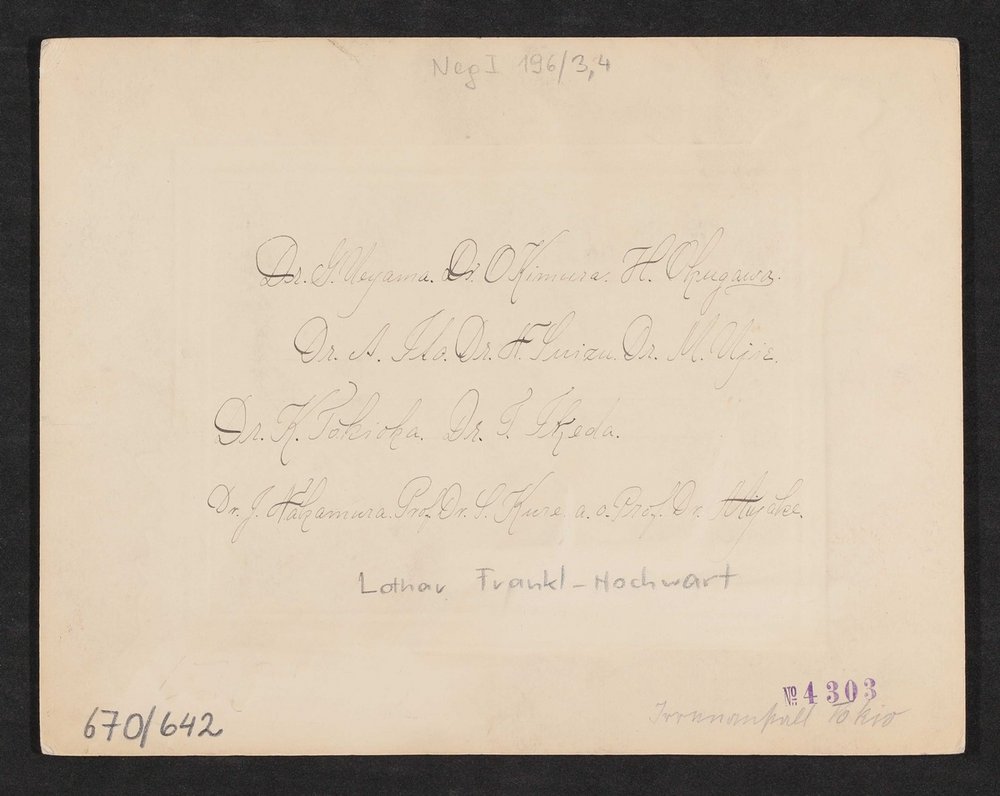 Neg I 196/3,4
Dr. G. Ueyama. Dr. O Kimura. H. Okugawa.
Dr. A. Ito. Dr. H. Suizu. Dr. M. Ujie.
Dr. K. Tokioka. Dr. T. Ikeda.
Dr. J. Nakamura. Prof. Dr. S. Kure. a. o. Prof. Dr. Miyake.
Lothar Frankl-Hochwart
No 4303
Irrenanstalt Tokio
670/642